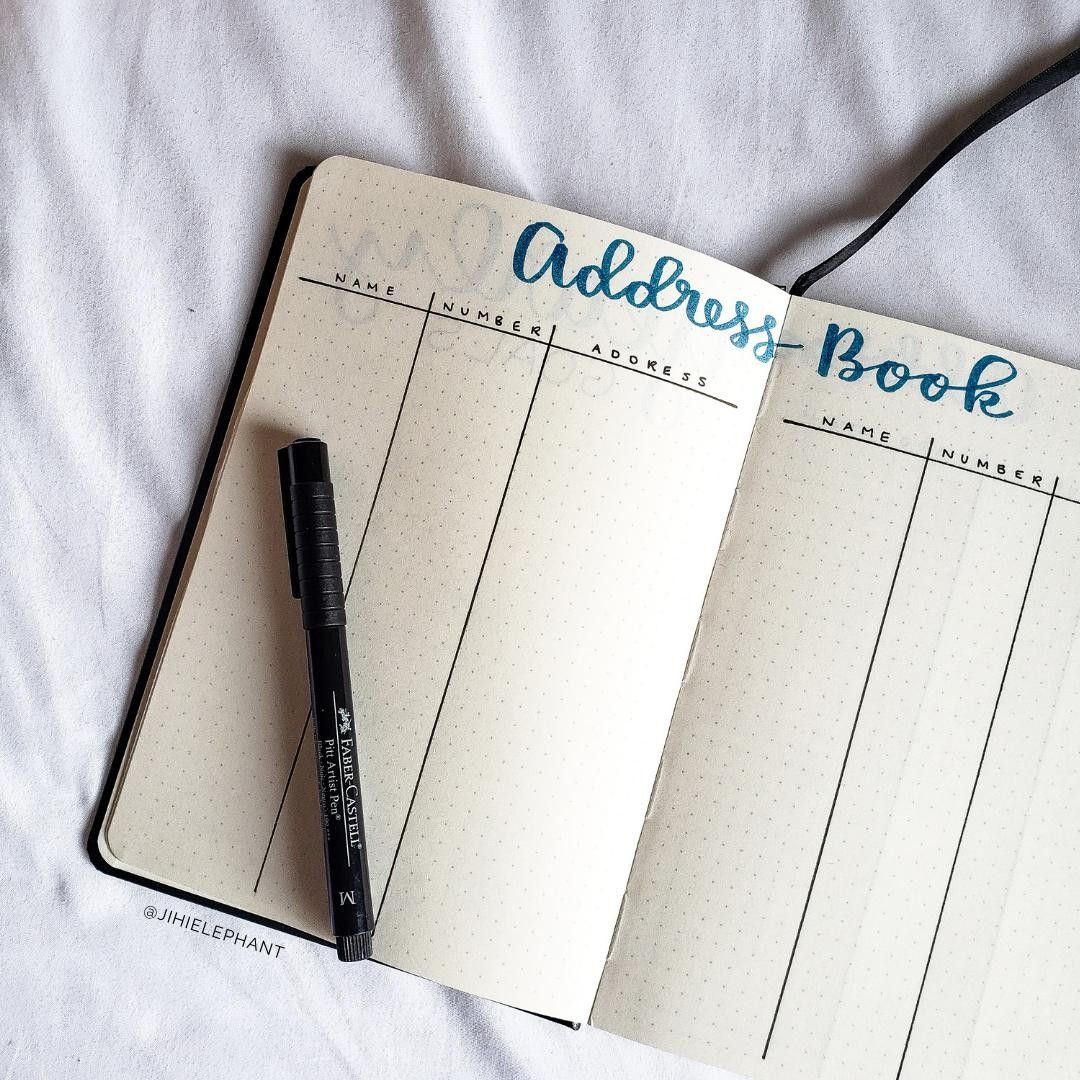 Address Book
NAME NUMBER ADDRESS
NAME NUMBER
FABER-CASTELL
Pitt Artist Pen®
M
@JIHIELEPHANT